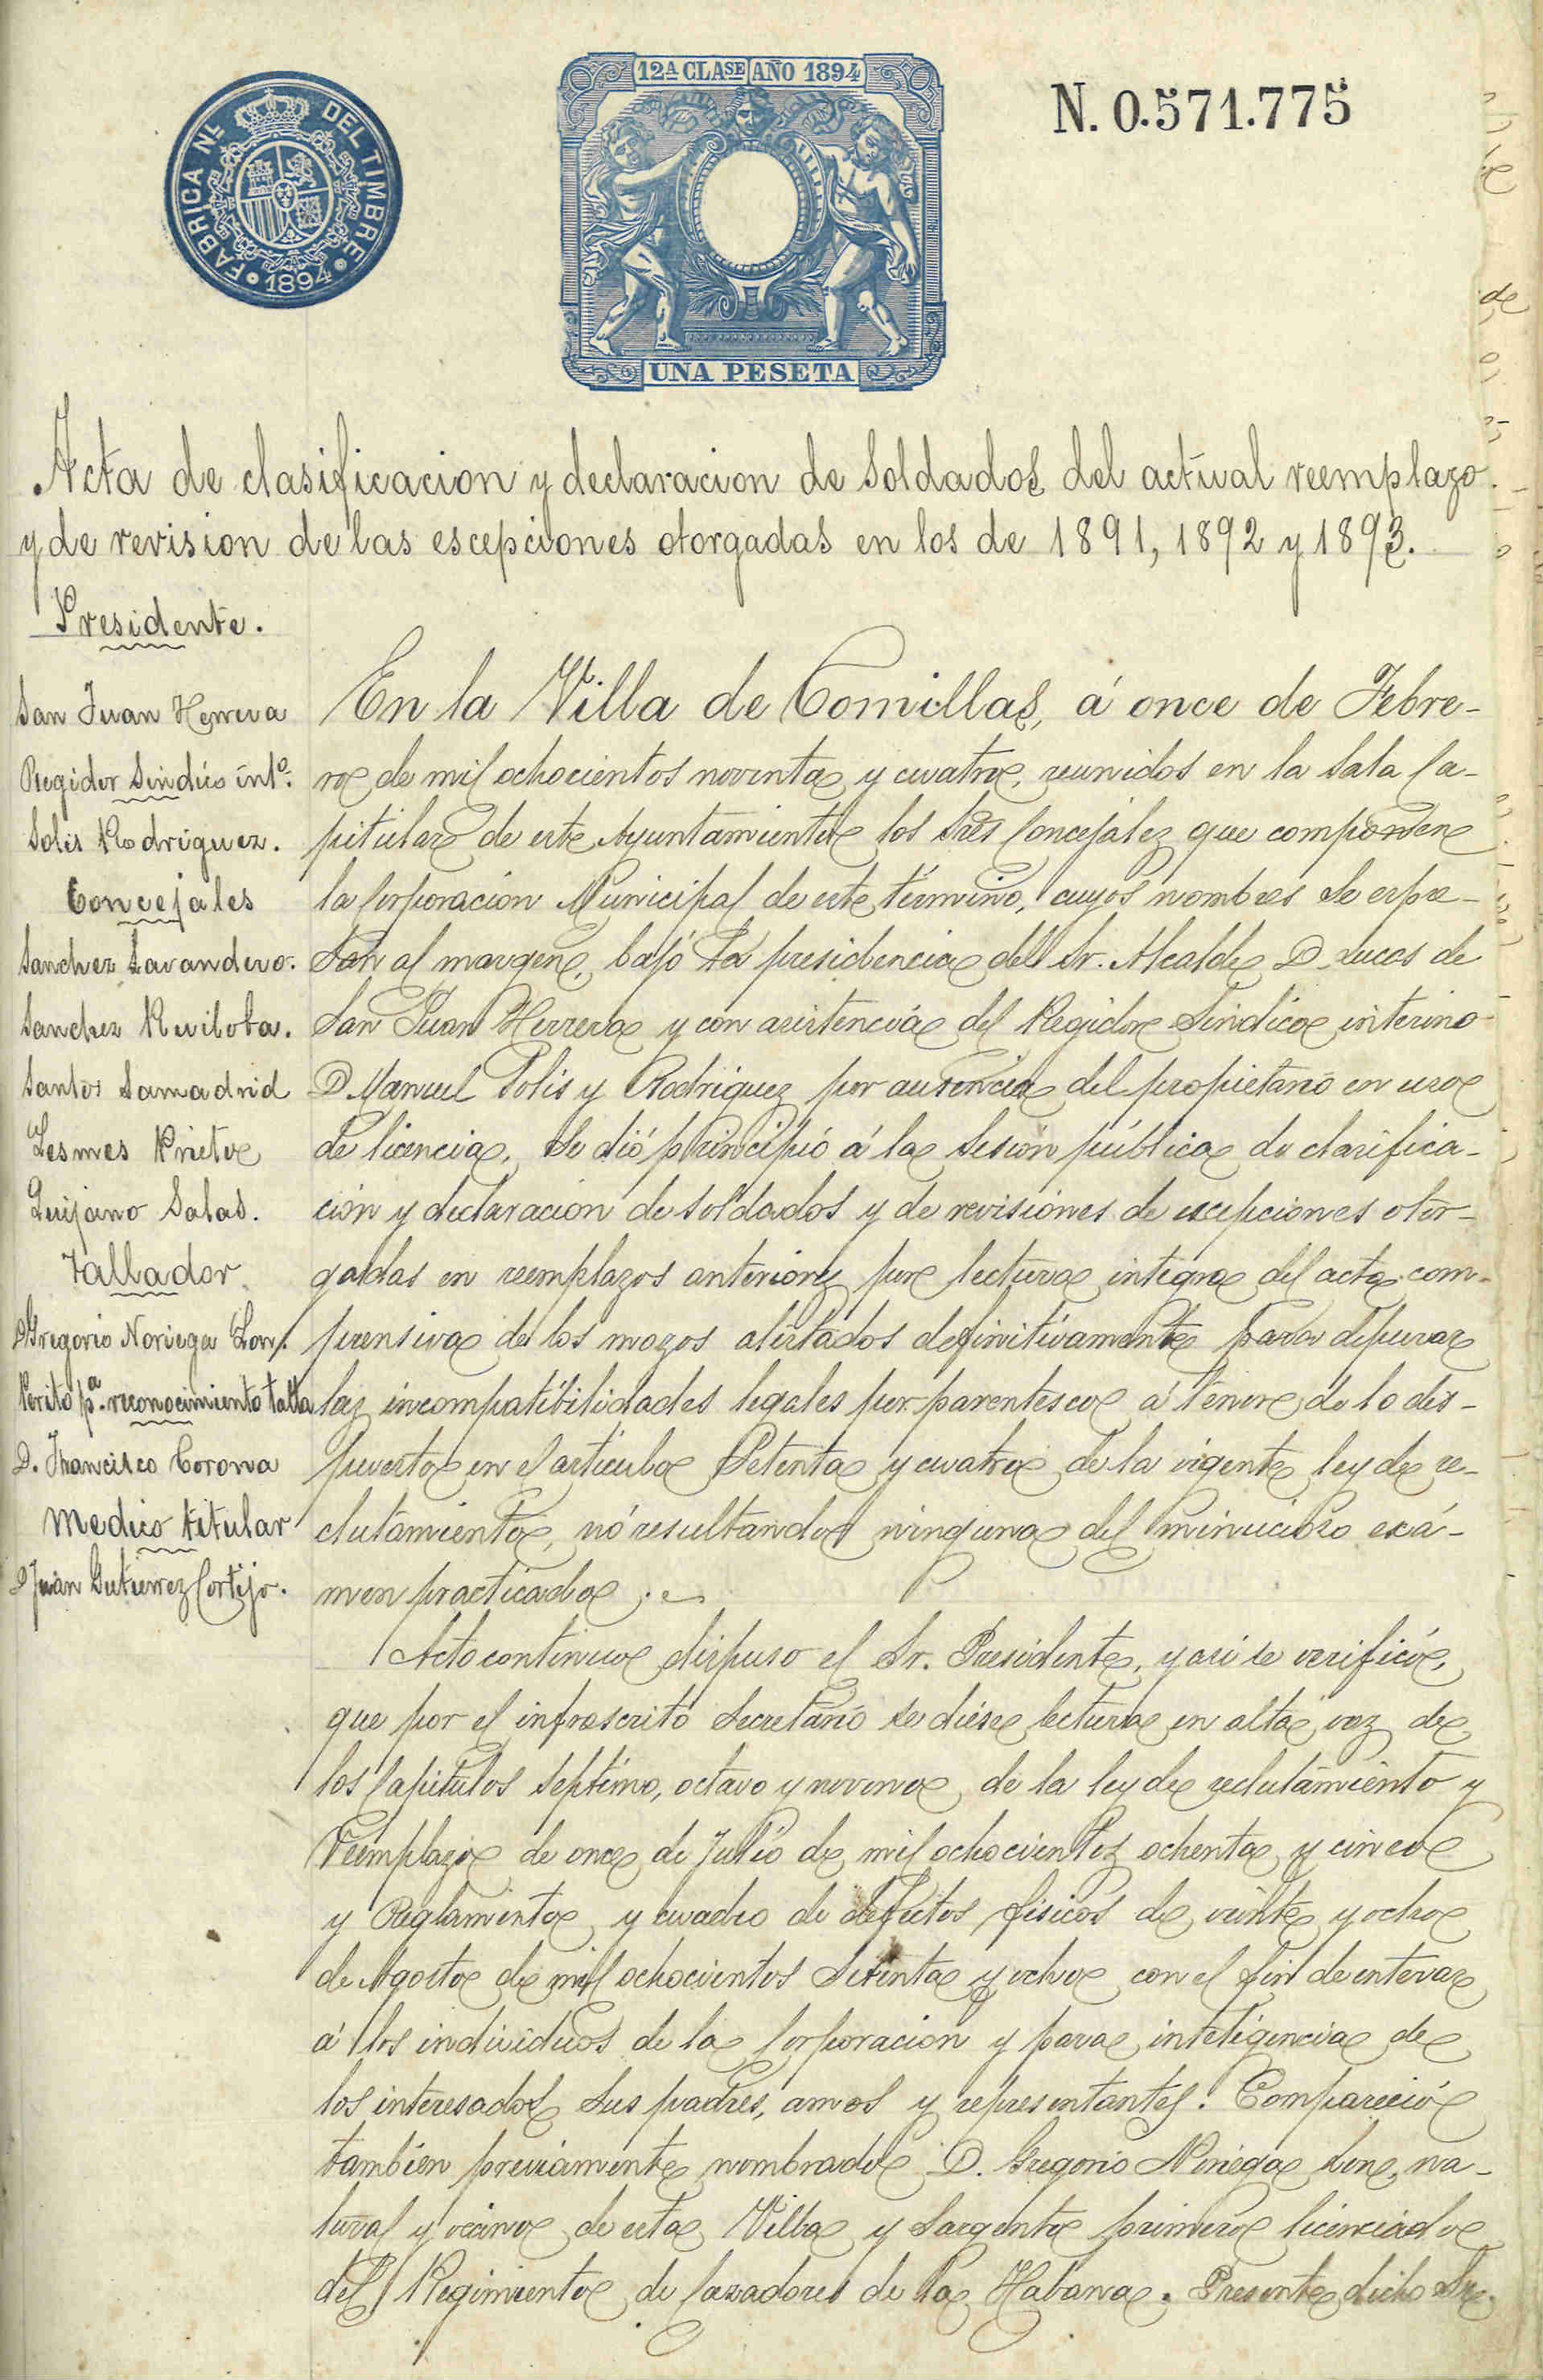 FABRICA NL. DEL TIMBRE
1894
12A CLASE AÑO 1894
UNA PESETA
N. 0.571.775
Acta de clasificacion y declaracion de Soldados del actual reemplazo
y de revision de las escepciones otorgadas en los de 1891, 1892 y 1893.
Presidente.
San Juan Herrera
Regidor Sindico intº.
Solis Rodriguez.
Concejales
Sanchez Lavandero.
Sanchez Ruiloba.
Santos Samadrid
Lesmes Prieto
Quijano Salas.
Tallador
D Gregorio Noriega Lon.
Perito pª. reconocimiento talla
D. Francisco Corona
Medico titular
D Juan Gutierrez Cortijo.
En la Villa de Comillas, á once de Febre-
ro de mil ochocientos noventa y cuatro, reunidos en la Sala Ca-
pitular de este Ayuntamiento los Sres Concejales que componen
la Corporación Municipal de este término, cuyos nombres se expre-
san al margen, bajo la presidencia del Sr. Alcalde D. Lucas de
San Juan Herrera y con asistencia del Regidor Sindico interino
D Manuel Solis y Rodriguez por ausencia del propietario en uso
de licencia. Se dió principió á la sesión pública de clasifica-
ción y declaración de soldados y de revisiones de escepciones otor-
gadas en reemplazos anteriores por lectura integra del acta com-
prensiva de los mozos alistados definitivamente para depurar
las incompatibilidades legales por parentesco á tenor de lo dis-
puesto en el artículo Setenta y cuatro de la vigente ley de re-
clutamiento, nó resultando ninguna del minucioso exá-
men practicado.
Acto continuo dispuso el Sr. Presidente, y asi se verificó,
que por el infrascrito Secretario se diese lectura en alta voz de
los Capitulos septimo, octavo y noveno de la ley de reclutamiento y
Reemplazo de once de Julio de mil ochocientos ochenta y cinco
y Reglamento y cuadro de defectos fisicos de veinte y ocho
de Agosto de mil ochocientos setenta y ocho con el fin de enterar
á los individuos de la Corporación y para inteligencia de
los interesados sus padres, amos y representantes. Compareció
tambien previamente nombrado D. Gregorio Noriega Lon, na-
tural y vecino de esta Villa y Sargento primero licenciado
del Regimiento de Cazadores de la Habana. Presente dicho Sr.